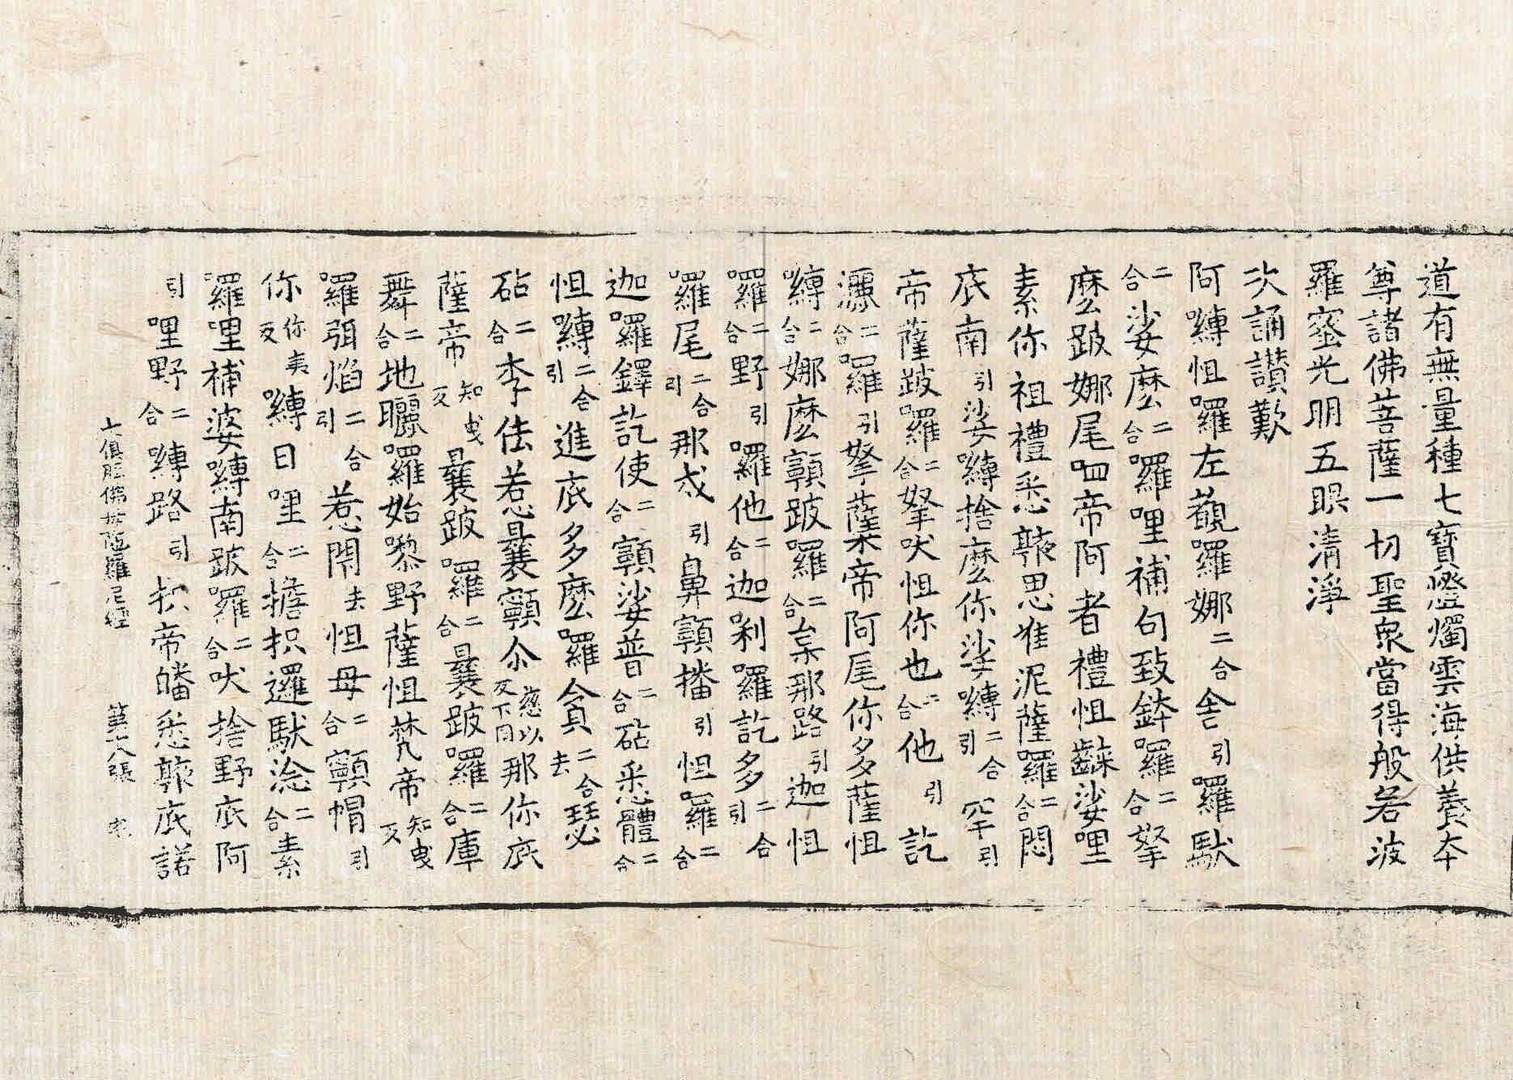 道有無量種七寶燈燭雲海供養本
尊諸佛菩薩一切聖衆當得般若波
羅蜜光明五眼清淨
次誦讃歎
阿嚩怛羅左覩羅娜二合舍引羅馱
二合娑麼二合羅哩補句致鉢羅二合拏
麼跛娜尾四帝阿者禮怛齲娑哩
素你祖禮悉䫂思准泥薩羅二合悶
底南引娑嚩捨麼你娑嚩二合引罕引
帝薩跛羅二合拏吠怛你也二合他引訖
灑二合羅引拏薩帝阿尾你多薩怛
嚩二合娜麼顙跛羅二合枲那路引迦怛
囉二合野引囉他二合迦唎羅訖多二合引
囉尾二合引那戍引鼻顙播引怛羅二合
迦囉鐸訖使二合顙娑普二合砧悉體二合
怛嚩二合引進底多麼羅貪二合去瑟
砧二合李佉惹曩顙尒慈以反下同那你底
薩帝知曳反曩跛囉二合曩跛羅二合庫
舞二合地曬羅始嚟野薩怛梵帝知曳反
羅弭焰二合引惹閇去怛母二合顙帽引
你你夷反嚩日哩二合擔抧邏馱淰二合素
羅哩補婆嚩南跛囉二合吠捨野底阿
引哩野二合嚩路引抧帝皤悉䫂底諾
七俱胝佛母陁羅尼經 第十八張